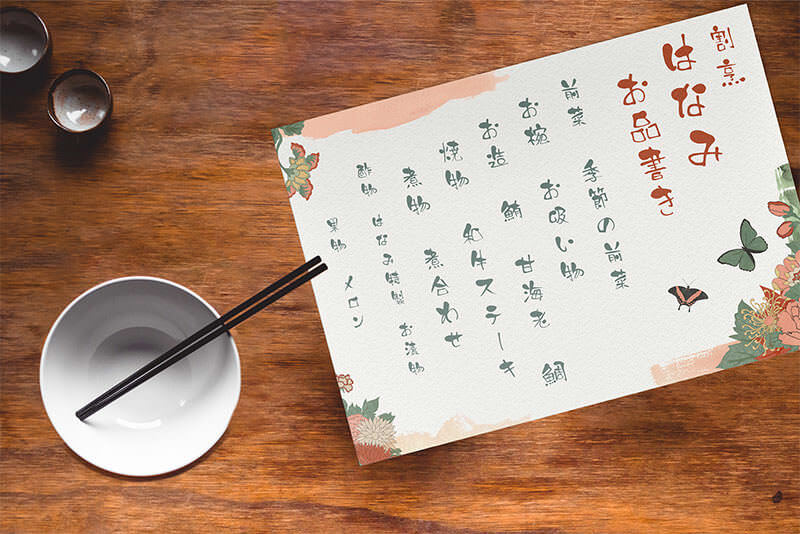 割烹
はなみ
お品書き
前菜 季節の前菜
お椀 お吸い物
お造 鮪 甘海老 鯛
焼物 和牛ステーキ
煮物 煮合わせ
酢物 はなみ特製 お漬物
果物 メロン